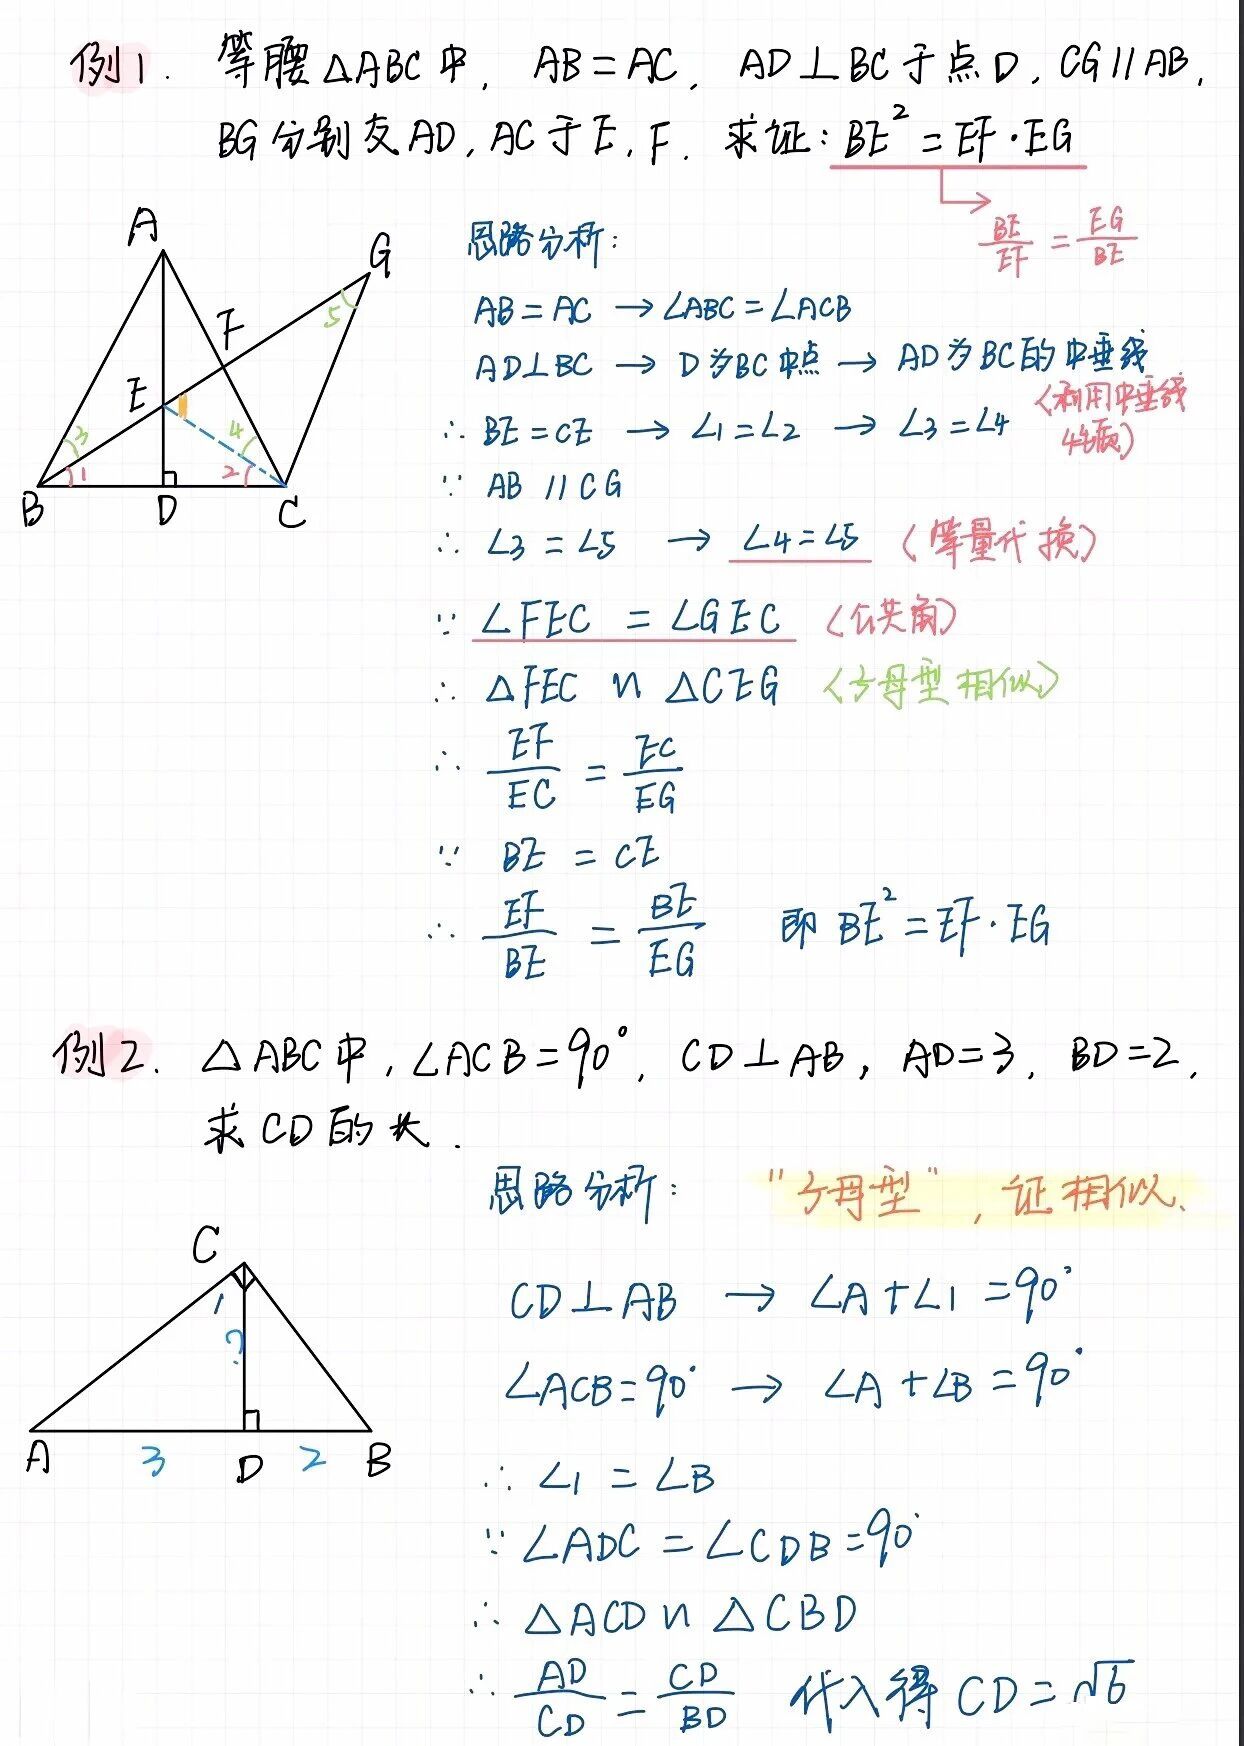 例1. 等腰△ABC中, AB=AC, AD⊥BC于点D, CG∥AB,
BG分别交AD, AC于E, F. 求证: BE²=EF·EG
BE/EF = EG/BE
A
G
F
E
5
3
4
1
2
B
D
C
思路分析:
AB=AC → ∠ABC=∠ACB
AD⊥BC → D为BC中点 → AD为BC的中垂线
∴ BE=CE → ∠1=∠2 → ∠3=∠4 (利用中垂线
性质)
∵ AB∥CG
∴ ∠3=∠5 → ∠4=∠5 (等量代换)
∵ ∠FEC = ∠GEC (公共角)
∴ △FEC ∽ △CEG (子母型相似)
∴ EF/EC = EC/EG
∵ BE = CE
∴ EF/BE = BE/EG 即 BE²=EF·EG
例2. △ABC中, ∠ACB=90°, CD⊥AB, AD=3, BD=2,
求CD的长.
思路分析: "子母型", 证相似.
C
1
?
A
3
D
2
B
CD⊥AB → ∠A+∠1=90°
∠ACB=90° → ∠A+∠B=90°
∴ ∠1=∠B
∵ ∠ADC=∠CDB=90°
∴ △ACD∽△CBD
∴ AD/CD = CD/BD 代入得 CD=√6